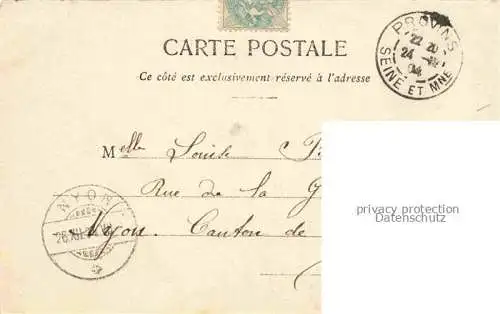 CARTE POSTALE
PROVINS
22 20
24
04
SEINE ET MNE
Ce côté est exclusivement réservé à l'adresse
Melle Louise
Rue de la G
Nyon. Canton de
NYON
privacy protection
Datenschutz